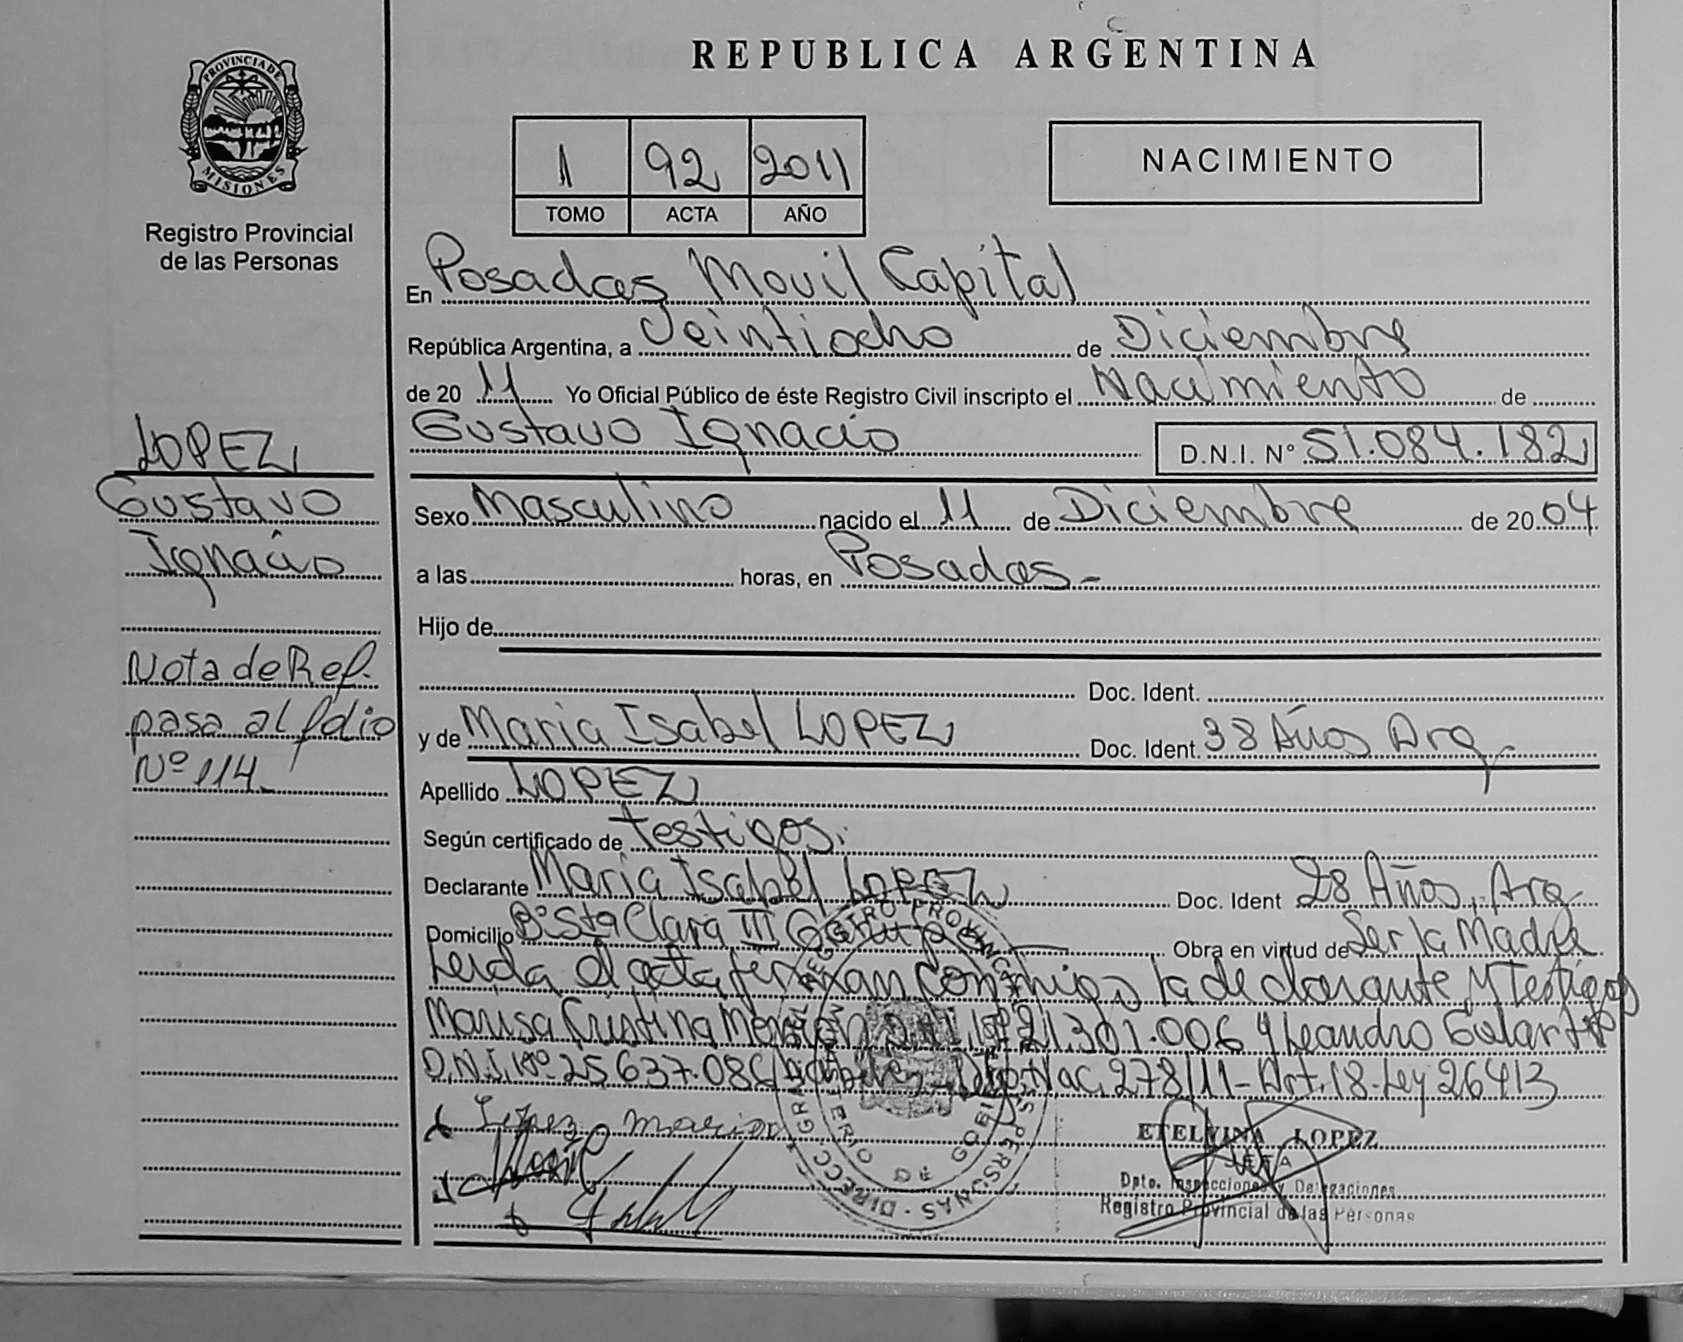 PROVINCIA DE
MISIONES
Registro Provincial
de las Personas
REPUBLICA ARGENTINA
1 92 2011
TOMO ACTA AÑO
NACIMIENTO
En Posadas Movil Capital
República Argentina, a Veintiocho de Diciembre
de 20 11 Yo Oficial Público de éste Registro Civil inscripto el Nacimiento de
Gustavo Ignacio D.N.I. Nº 51.084.182
Sexo Masculino nacido el 11 de Diciembre de 20 04
a las horas, en Posadas-
Hijo de
Doc. Ident.
y de Maria Isabel LOPEZ Doc. Ident. 38 Años Arg
Apellido LOPEZ
Según certificado de Testigos.
Declarante Maria Isabel LOPEZ Doc. Ident 28 Años, Arg
Domicilio Bº Sta Clara III Obra en virtud de Ser la Madre
Leida el acta firman conmigo la declarante y Testigos
Marisa Cristina D.N.I. Nº 21.301.006 y Leandro
D.N.I. Nº 25637.086 Dto. Nac. 278/11-Art. 18-Ley 26413
Lopez Maria
ETELVINA LOPEZ
JEFA
Dpto. Inspecciones y Delegaciones
Registro Provincial de las Personas
LOPEZ,
Gustavo
Ignacio
Nota de Ref.
pasa al folio
Nº 114-